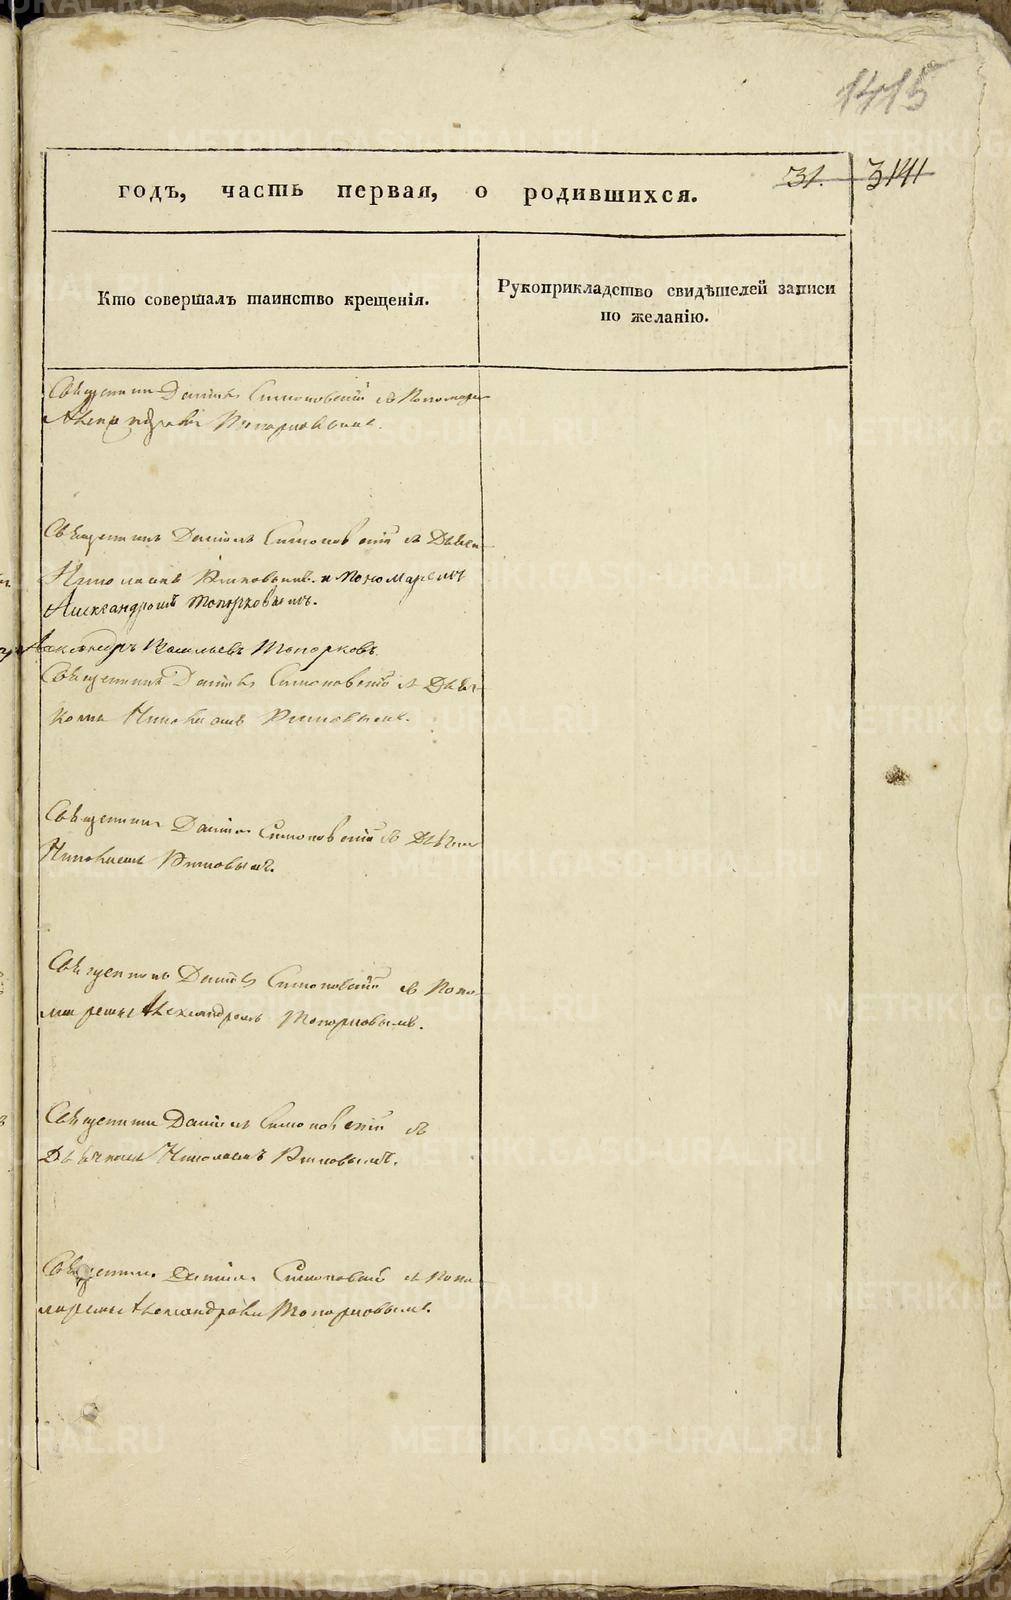 1415
годъ, часть первая, о родившихся.
31. 3141
Кто совершалъ таинство крещенія.
Рукоприкладство свидѣтелей записи
по желанію.
Священникъ Даніилъ Симоновскій съ Понома
Священникъ Даніилъ Симоновскій съ Дьяч
Николаемъ и пономаремъ
Александромъ Топорковымъ.
Александръ Васильевъ Топорковъ
Священникъ Даніилъ Симоновскій съ Дьяч
комъ Николаемъ
Священникъ Даніилъ Симоновскій съ Дьяч
Николаемъ
Священникъ Даніилъ Симоновскій съ Поно
маремъ Александромъ Топорковымъ.
Священникъ Даніилъ Симоновскій съ
Дьячкомъ Николаемъ
Священникъ Даніилъ Симоновскій съ Поно
маремъ Александромъ Топорковымъ.
METRIKI.GASO-URAL.RU